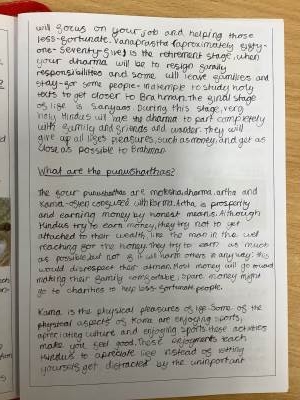 will focus on your job and helping those
less-fortunate. Vanaprastha (aproximately sixty-
one-seventy-five) is the retirement stage, when
your dharma will be to resign family
responsibilities and some will leave families and
stay for some people in temple to study holy
texts to get closer to Brahman. The final stage
of life is Sanyasa. During this stage, very
holy Hindus will dharma to part completely
with family and friends and wander. They will
give up all lifes pleasures, such as money, and get as
close as possible to Brahman.
What are the purusharthas?
The four purusharthas are moksha, dharma, artha and
Kama-often confused with karma. Artha, is prosperity
and earning money by honest means. Although
Hindus try to earn money, they try not to get
attached to their wealth, like the man in the well
reaching for the honey. They try to earn as much
as possible, but not if it will harm others in any way; this
would disrespect their atman. Most money will go toward
making their family comfortable; spare money might
go to charities to help less-fortunate people.
Kama is the physical pleasures of life. Some of the
physical aspects of Kama are enjoying sports,
appreciating culture and enjoying sports. These activities
make you feel good. These enjoyments teach
Hindus to apreciate life instead of letting
yourself get distracted by the unimportant